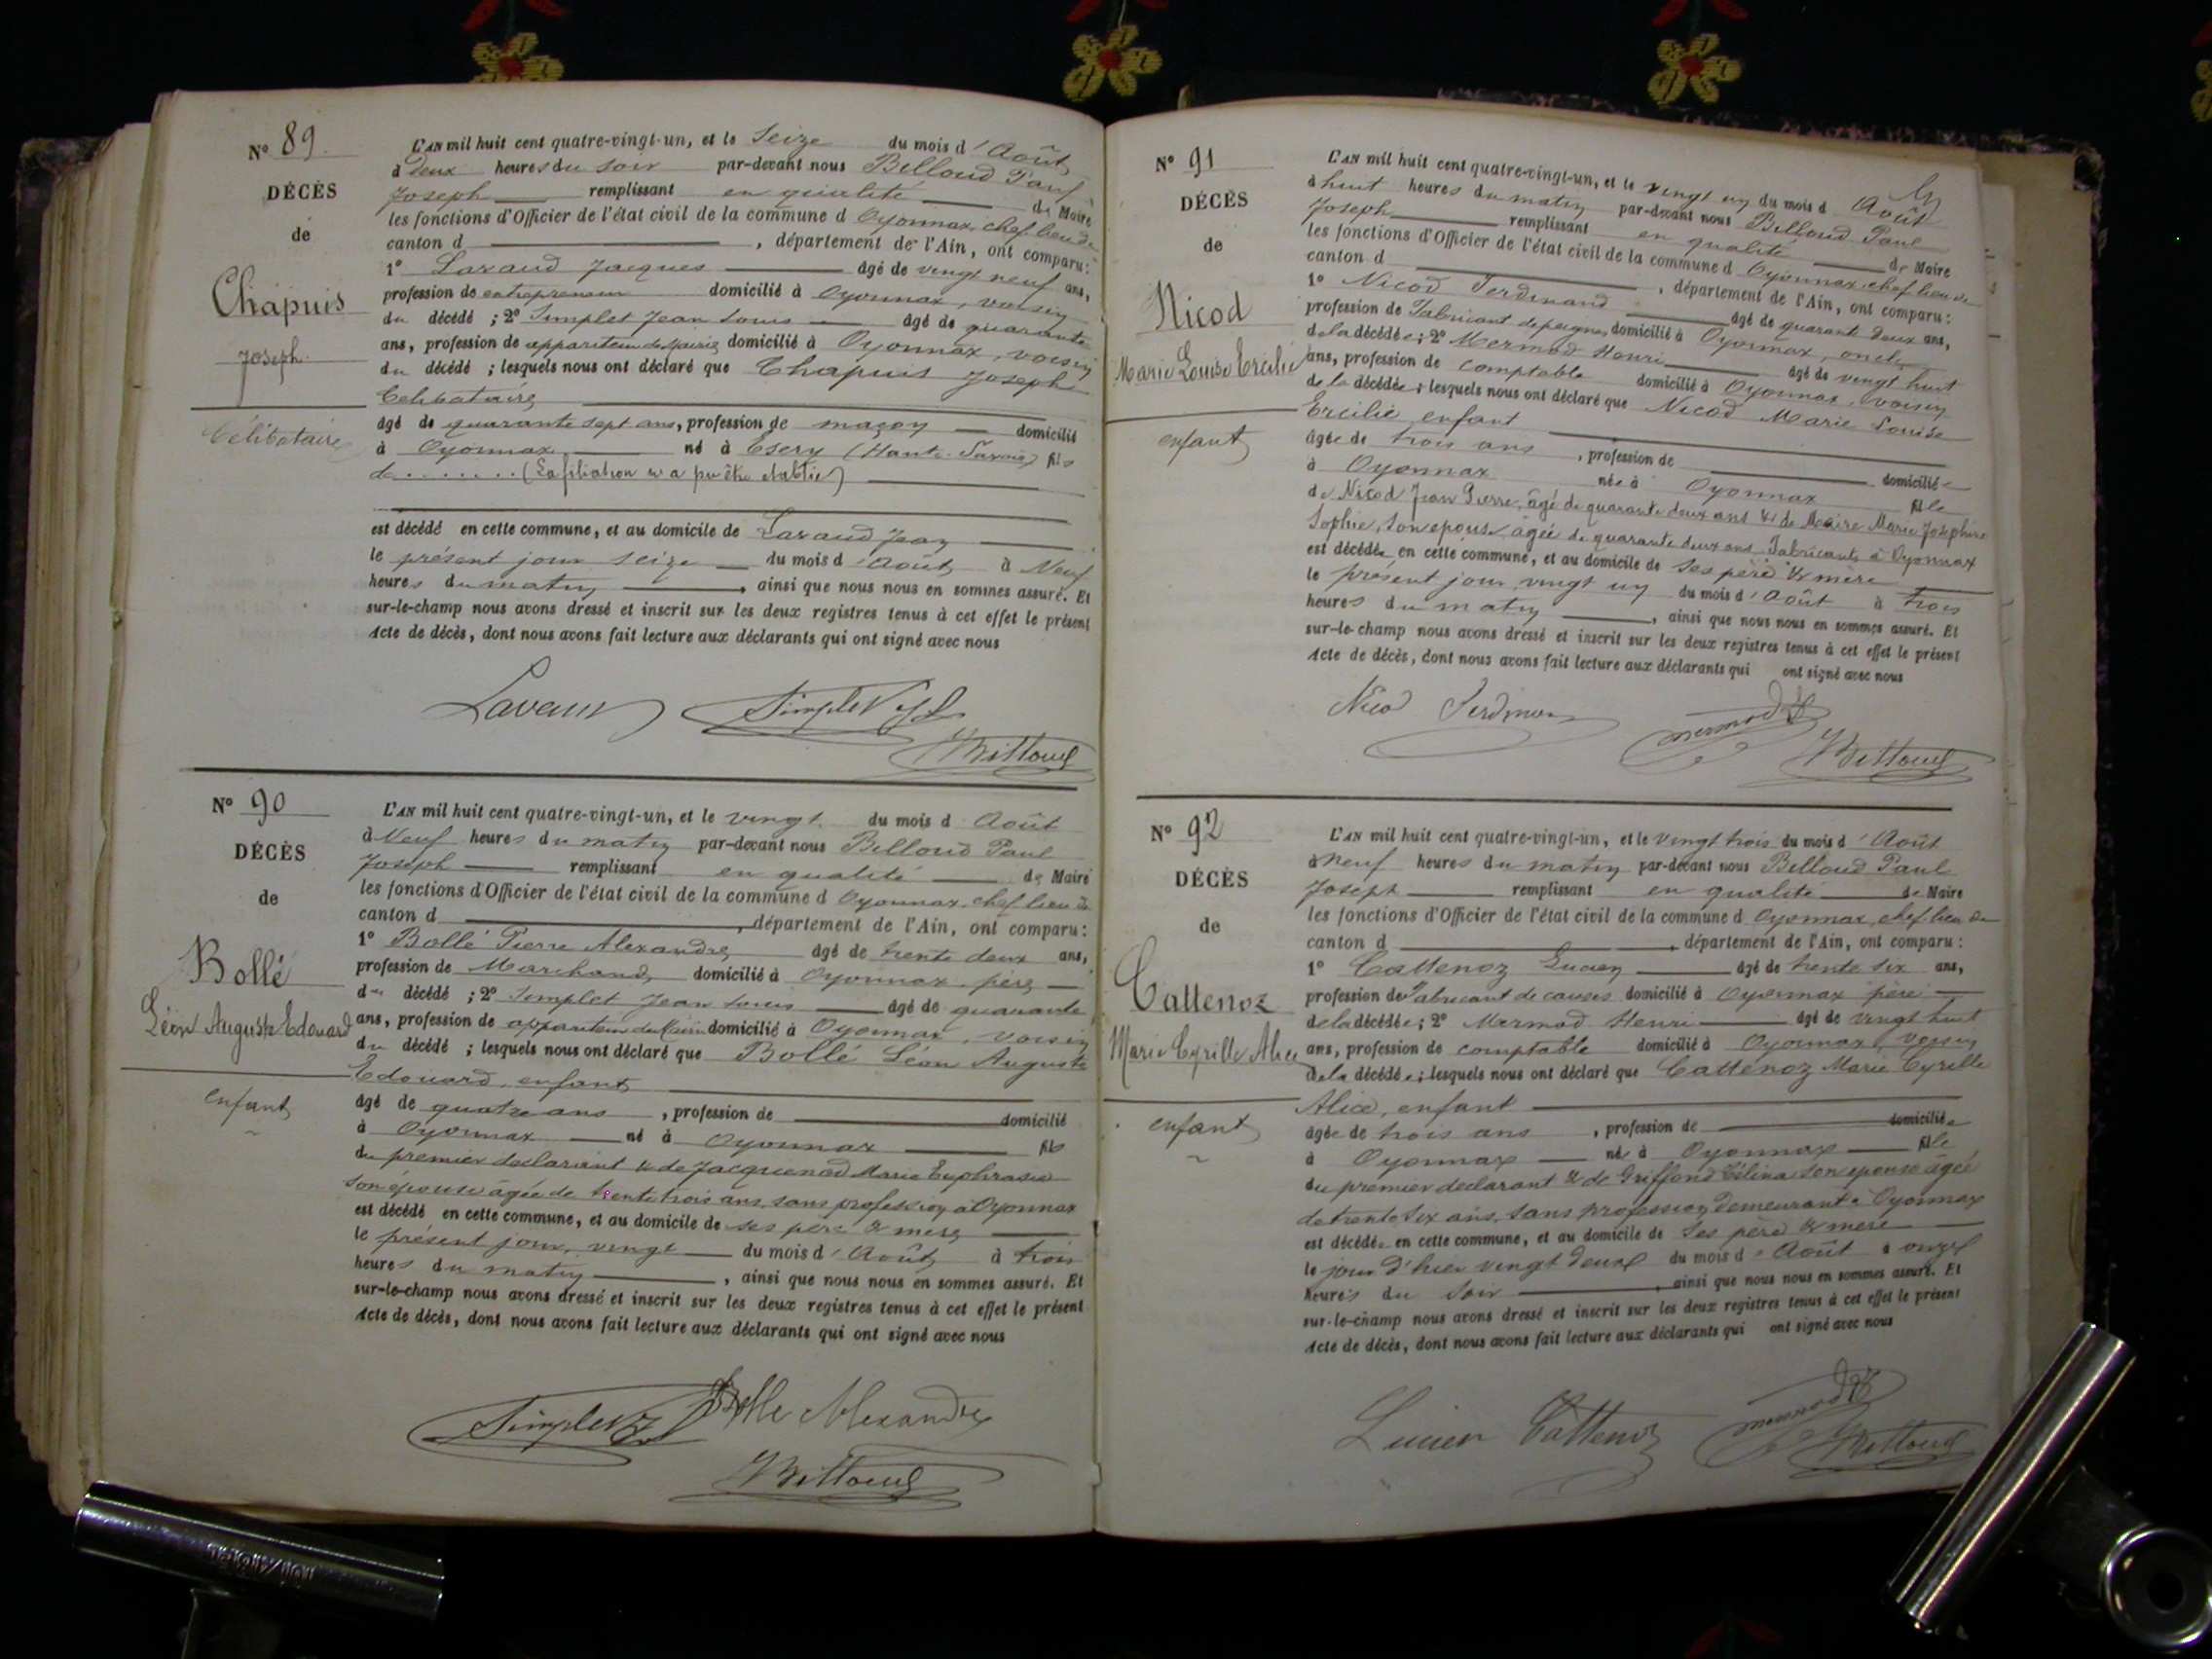 N° 89
DÉCÈS
de
Chapuis
Joseph
Célibataire
L'AN mil huit cent quatre-vingt-un, et le Seize du mois d'Août
à Deux heures du soir par-devant nous Belloud Paul
Joseph remplissant en qualité de Maire
les fonctions d'Officier de l'état civil de la commune d Oyonnax, chef lieu de
canton d , département de l'Ain, ont comparu:
1° Lavaud Jacques âgé de vingt neuf ans,
profession de entrepreneur domicilié à Oyonnax, voisin
du décédé ; 2° Simplet Jean Louis âgé de quarante
ans, profession de appariteur de Mairie domicilié à Oyonnax, voisin
du décédé ; lesquels nous ont déclaré que Chapuis Joseph
Célibataire
âgé de quarante sept ans, profession de maçon domicilié
à Oyonnax né à Esery (Haute-Savoie) fils
de ........ (La filiation n'a pu être établie)
est décédé en cette commune, et au domicile de Lavaud Jean
le présent jour seize du mois d'Août à Neuf
heures du matin , ainsi que nous nous en sommes assuré. Et
sur-le-champ nous avons dressé et inscrit sur les deux registres tenus à cet effet le présent
Acte de décès, dont nous avons fait lecture aux déclarants qui ont signé avec nous
Lavaud Simplet
Belloud
N° 90
DÉCÈS
de
Bollé
Léon Auguste Edouard
enfant
L'AN mil huit cent quatre-vingt-un, et le vingt du mois d Août
à Neuf heures du matin par-devant nous Belloud Paul
Joseph remplissant en qualité de Maire
les fonctions d'Officier de l'état civil de la commune d Oyonnax, chef lieu de
canton d , département de l'Ain, ont comparu:
1° Bollé Pierre Alexandre âgé de trente deux ans,
profession de Marchand domicilié à Oyonnax, père
du décédé ; 2° Simplet Jean Louis âgé de quarante
ans, profession de appariteur de Mairie domicilié à Oyonnax, voisin
du décédé ; lesquels nous ont déclaré que Bollé Léon Auguste
Edouard, enfant
âgé de quatre ans , profession de domicilié
à Oyonnax né à Oyonnax fils
du premier declarant & de Jacquenod Marie Euphrasie
son épouse âgée de trente trois ans, sans profession à Oyonnax
est décédé en cette commune, et au domicile de ses père & mère
le présent jour, vingt du mois d'Août à trois
heures du matin , ainsi que nous nous en sommes assuré. Et
sur-le-champ nous avons dressé et inscrit sur les deux registres tenus à cet effet le présent
Acte de décès, dont nous avons fait lecture aux déclarants qui ont signé avec nous
Simplet Bollé Alexandre
Belloud
N° 91
DÉCÈS
de
Nicod
Marie Louise Ercilie
enfant
L'AN mil huit cent quatre-vingt-un, et le vingt un du mois d Août
à huit heures du matin par-devant nous Belloud Paul
Joseph remplissant en qualité de Maire
les fonctions d'Officier de l'état civil de la commune d Oyonnax, chef lieu de
canton d , département de l'Ain, ont comparu:
1° Nicod Ferdinand âgé de quarante deux ans,
profession de Fabricant de peignes domicilié à Oyonnax, oncle
de la décédée ; 2° Mermod Henri âgé de vingt huit
ans, profession de comptable domicilié à Oyonnax, voisin
de la décédée ; lesquels nous ont déclaré que Nicod Marie Louise
Ercilie, enfant
âgée de trois ans , profession de domiciliée
à Oyonnax née à Oyonnax fille
de Nicod Jean Pierre, âgé de quarante deux ans & de Maire Marie Josephine
Sophie, son épouse âgée de quarante deux ans, Fabricants à Oyonnax
est décédée en cette commune, et au domicile de ses père & mère
le présent jour, vingt un du mois d'Août à trois
heures du matin , ainsi que nous nous en sommes assuré. Et
sur-le-champ nous avons dressé et inscrit sur les deux registres tenus à cet effet le présent
Acte de décès, dont nous avons fait lecture aux déclarants qui ont signé avec nous
Nicod Ferdinand mermod H
Belloud
N° 92
DÉCÈS
de
Cattenoz
Marie Cyrille Alice
enfant
L'AN mil huit cent quatre-vingt-un, et le vingt trois du mois d'Août
à neuf heures du matin par-devant nous Belloud Paul
Joseph remplissant en qualité de Maire
les fonctions d'Officier de l'état civil de la commune d Oyonnax, chef lieu de
canton d , département de l'Ain, ont comparu:
1° Cattenoz Lucien âgé de trente six ans,
profession de Fabricant de domicilié à Oyonnax père
de la décédée ; 2° Mermod Henri âgé de vingt huit
ans, profession de comptable domicilié à Oyonnax, voisin
de la décédée ; lesquels nous ont déclaré que Cattenoz Marie Cyrille
Alice, enfant
âgée de trois ans , profession de domiciliée
à Oyonnax née à Oyonnax fille
du premier declarant & de Griffond Célina son épouse âgée
de trente six ans, sans profession, demeurant à Oyonnax
est décédée en cette commune, et au domicile de ses père & mère
le jour d'hier vingt deux du mois d'Août à onze
heures du soir , ainsi que nous nous en sommes assuré. Et
sur-le-champ nous avons dressé et inscrit sur les deux registres tenus à cet effet le présent
Acte de décès, dont nous avons fait lecture aux déclarants qui ont signé avec nous
Lucien Cattenoz mermod H
Belloud